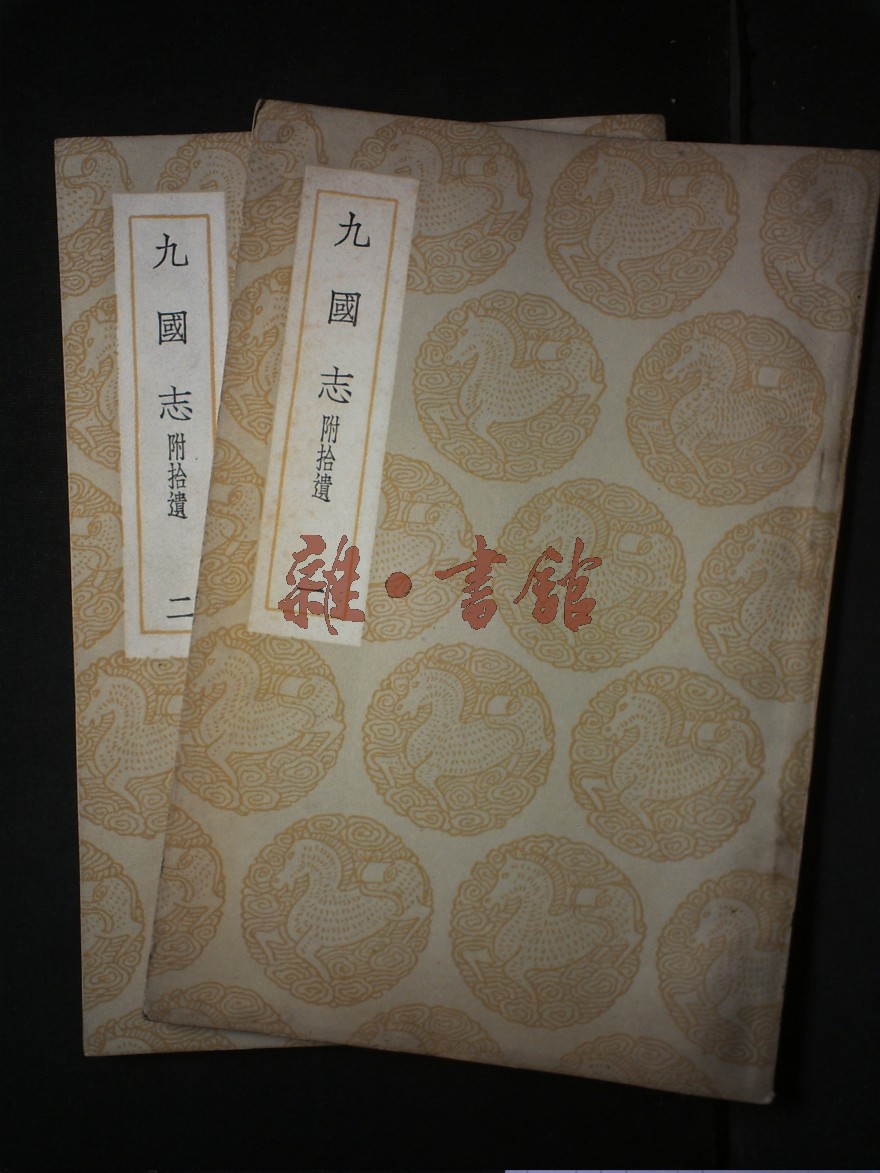 九國志附拾遺 一
九國志附拾遺 二
雜·書館